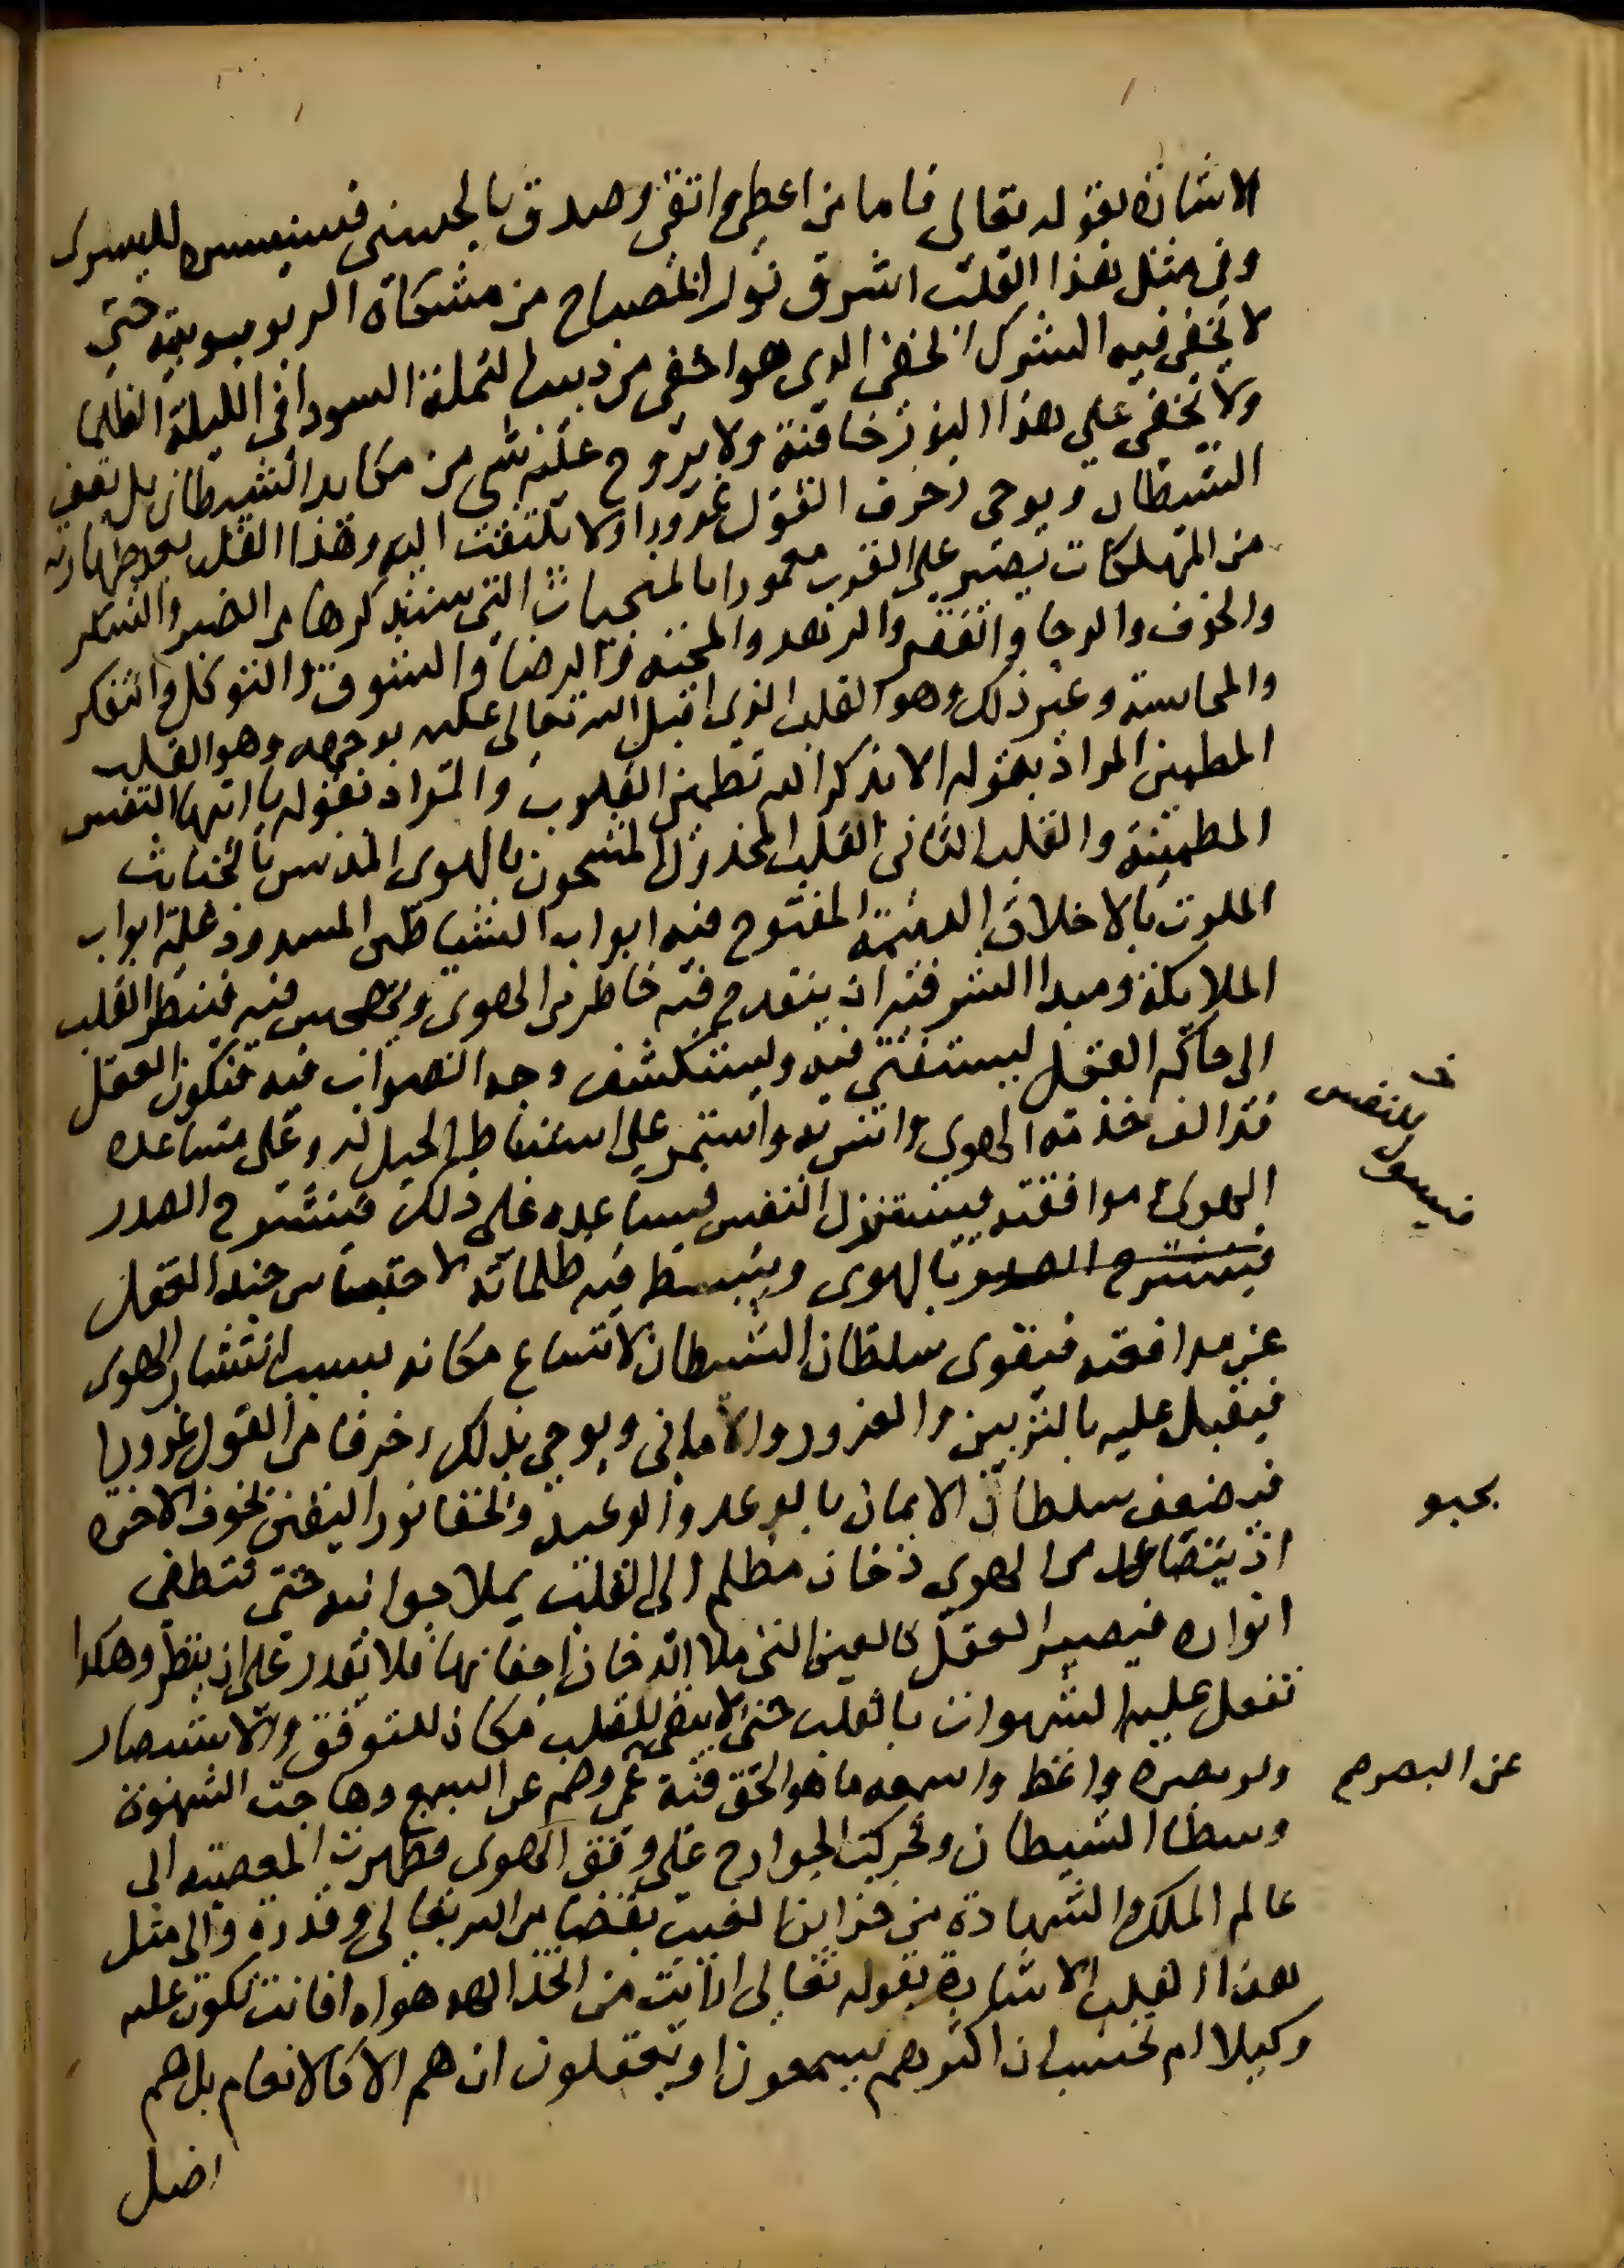 الاشارة بقوله تعالى فاما من اعطى واتقى وصدق بالحسنى فسنيسره لليسرى
وفي مثل هذا القلب اشرق نور المصباح من مشكاة الربوبية حتى
لا يخفى فيه الشرك الخفي الذي هو اخفى من دبيب النملة السودا في الليلة الظلما
ولا تخفى على هذا النور خافية ولا يروج عليه شي من مكايد الشيطان بل يقف
الشيطان ويوحي زخرف القول غرورا ولا يلتفت اليه وهذا القلب بعد طهارته
من المهلكات يصير على القرب معمورا بالمنجيات التي سنذكرها من الصبر والشكر
والخوف والرجا والفقر والزهد والمحبة والرضا والشوق والتوكل والتفكر
والمحاسبة وغير ذلك وهو القلب الذي اقبل الله تعالى عليه بوجهه وهو القلب
المطمئن المراد بقوله الا بذكر الله تطمئن القلوب والمراد بقوله يا ايتها النفس
المطمئنة والقلب الثاني القلب المخذول المشحون بالهوى المدنس بالخبائث
الملوث بالاخلاق الذميمة المفتوح فيه ابواب الشياطين المسدود عليه ابواب
الملائكة ومبدا الشر فيه ان ينقدح فيه خاطر من الهوى ويهجس فيه فينظر القلب
الى حاكم العقل ليستفتي فيه ويستكشف وجه الصواب فيه فيكون العقل
قد الف خدمة الهوى وانس به واستمر على استنباط الحيل له وعلى مساعدة
الهوى وموافقته فيستنزل النفس فيساعده على ذلك فينشرح الصدر
فينشرح الصدر بالهوى وينبسط فيه ظلماته لاحتباس جند العقل
عن مدافعته فيقوى سلطان الشيطان لاتساع مكانه بسبب انتشار الهوى
فيقبل عليه بالتزيين والغرور والاماني ويوحي بذلك زخرفا من القول غرورا
فيضعف سلطان الايمان بالوعد والوعيد ويخفا نور اليقين بخوف الاخرة
اذ يتصاعد من الهوى دخان مظلم الى القلب يملا جوانبه حتى تنطفي
انواره فيصير العقل كالعين التي ملا الدخان اجفانها فلا يقدر على ان ينظر وهكذا
تفعل غلبة الشهوات بالقلب حتى لا يبقى للقلب مكان للتوقف والاستبصار
ولو بصره واعظ واسمعه ما هو الحق فيه عمي وصم عن السمع وهاجت الشهوة
وسطا الشيطان وتحركت الجوارح على وفق الهوى فظهرت المعصية الى
عالم الملك والشهادة من خزاين الغيب بقضا من الله تعالى وقدره والى مثل
هذا القلب الاشارة بقوله تعالى ارايت من اتخذ الهه هواه افانت تكون عليه
وكيلا ام تحسب ان اكثرهم يسمعون او يعقلون ان هم الا كالانعام بل هم
اضل
النفس
يخبو
عن البصر صح